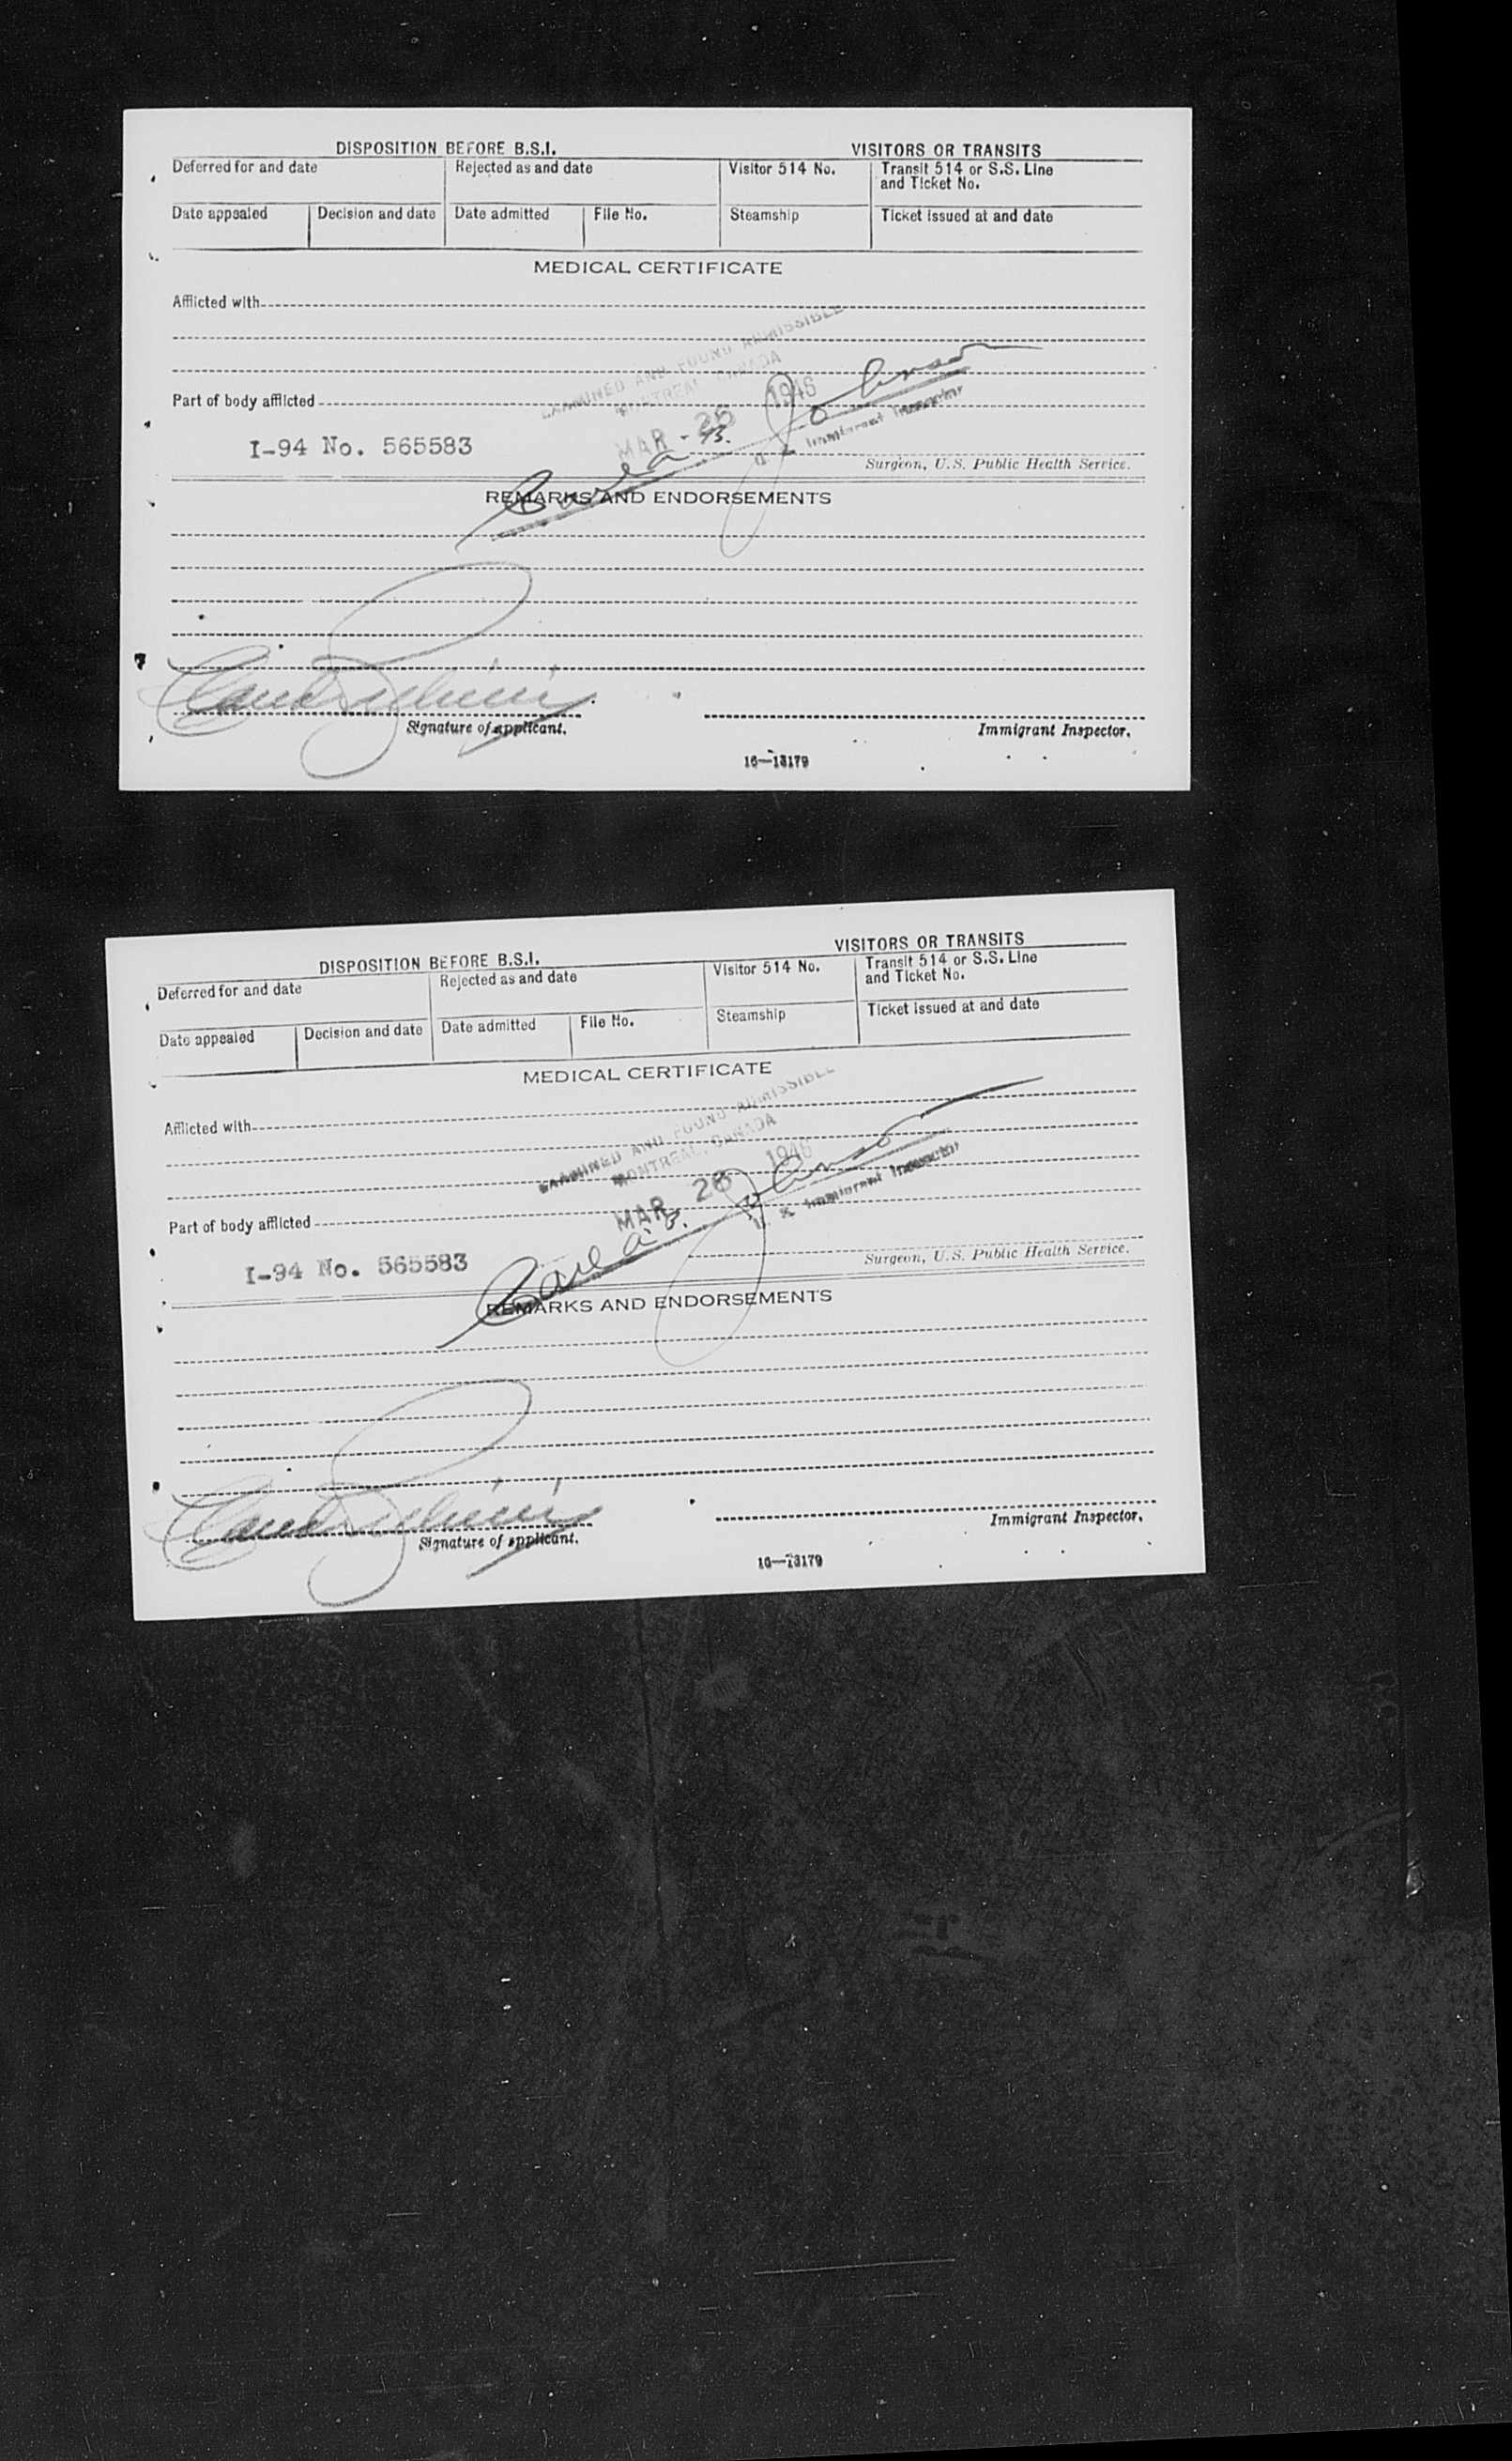 DISPOSITION BEFORE B.S.I.
VISITORS OR TRANSITS
Deferred for and date
Rejected as and date
Visitor 514 No.
Transit 514 or S.S. Line
and Ticket No.
Date appealed
Decision and date
Date admitted
File No.
Steamship
Ticket issued at and date
MEDICAL CERTIFICATE
Afflicted with
EXAMINED AND FOUND ADMISSIBLE
MONTREAL, CANADA
Part of body afflicted
MAR 26 1946
Carl A. B. Johnson
U. S. Immigrant Inspector
I-94 No. 565583
Surgeon, U.S. Public Health Service.
REMARKS AND ENDORSEMENTS
Signature of applicant.
Immigrant Inspector.
16—13179
DISPOSITION BEFORE B.S.I.
VISITORS OR TRANSITS
Deferred for and date
Rejected as and date
Visitor 514 No.
Transit 514 or S.S. Line
and Ticket No.
Date appealed
Decision and date
Date admitted
File No.
Steamship
Ticket issued at and date
MEDICAL CERTIFICATE
Afflicted with
EXAMINED AND FOUND ADMISSIBLE
MONTREAL, CANADA
Part of body afflicted
MAR 26 1946
Carl A. B. Johnson
U. S. Immigrant Inspector
I-94 No. 565583
Surgeon, U.S. Public Health Service.
REMARKS AND ENDORSEMENTS
Signature of applicant.
Immigrant Inspector.
16—13179